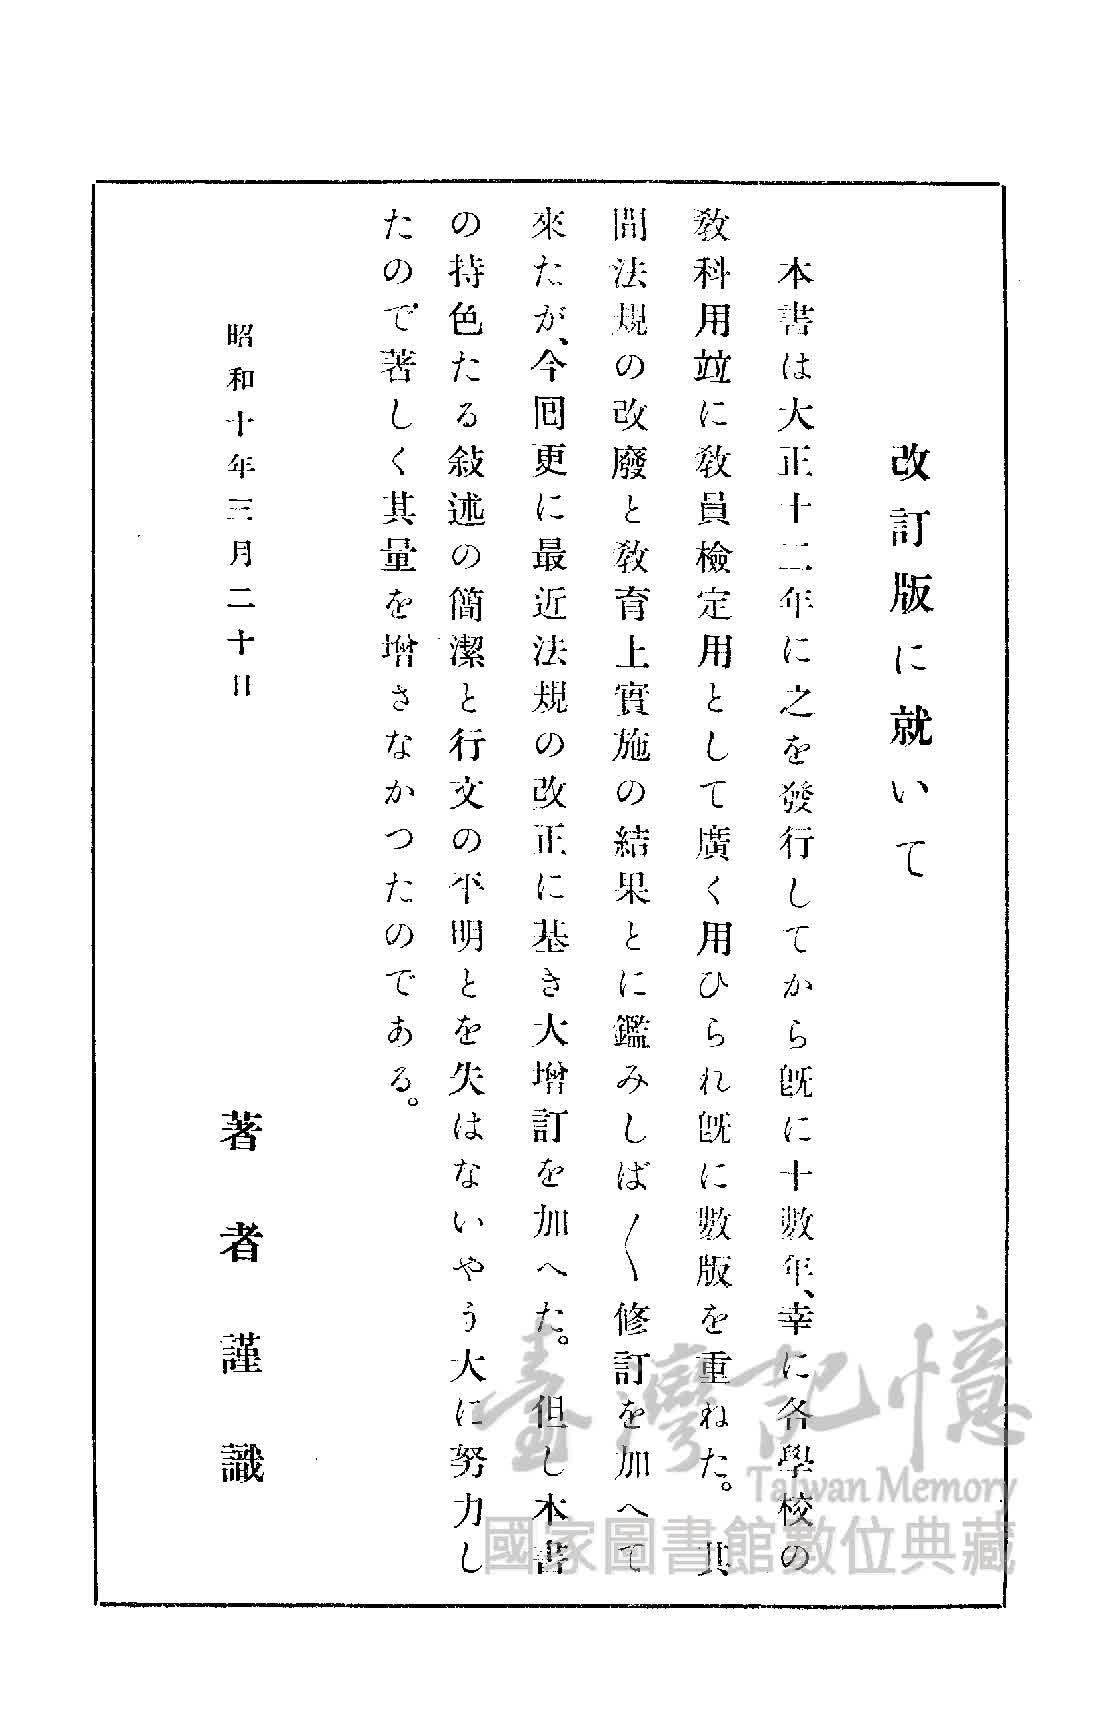 改訂版に就いて
本書は大正十二年に之を發行してから既に十數年、幸に各學校の
教科用竝に教員檢定用として廣く用ひられ既に數版を重ねた。其
間法規の改廢と教育上實施の結果とに鑑みしば〱修訂を加へて
來たが、今囘更に最近法規の改正に基き大增訂を加へた。但し本書
の持色たる敍述の簡潔と行文の平明とを失はないやう大に努力し
たので著しく其量を增さなかつたのである。
昭和十年三月二十日
著者謹識
臺灣記憶
Taiwan Memory
國家圖書館數位典藏